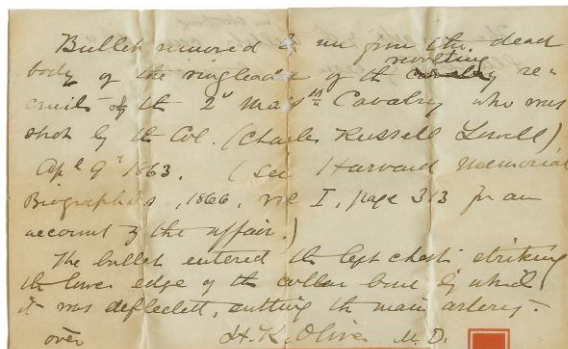 Bullet removed by me from the dead
body of the ringleader of the revolting cavalry re-
cruits of the 2d Mass tts Cavalry who was
shot by the Col. (Charles Russell Lowell)
Apl 9th 1863. (See Harvard Memorial
Biographies, 1866, vol I, page 313 for an
account of the affair.)
The bullet entered the left chest striking
the lower edge of the collar bone by which
it was deflected, cutting the main artery.
over H. K. Oliver M.D.